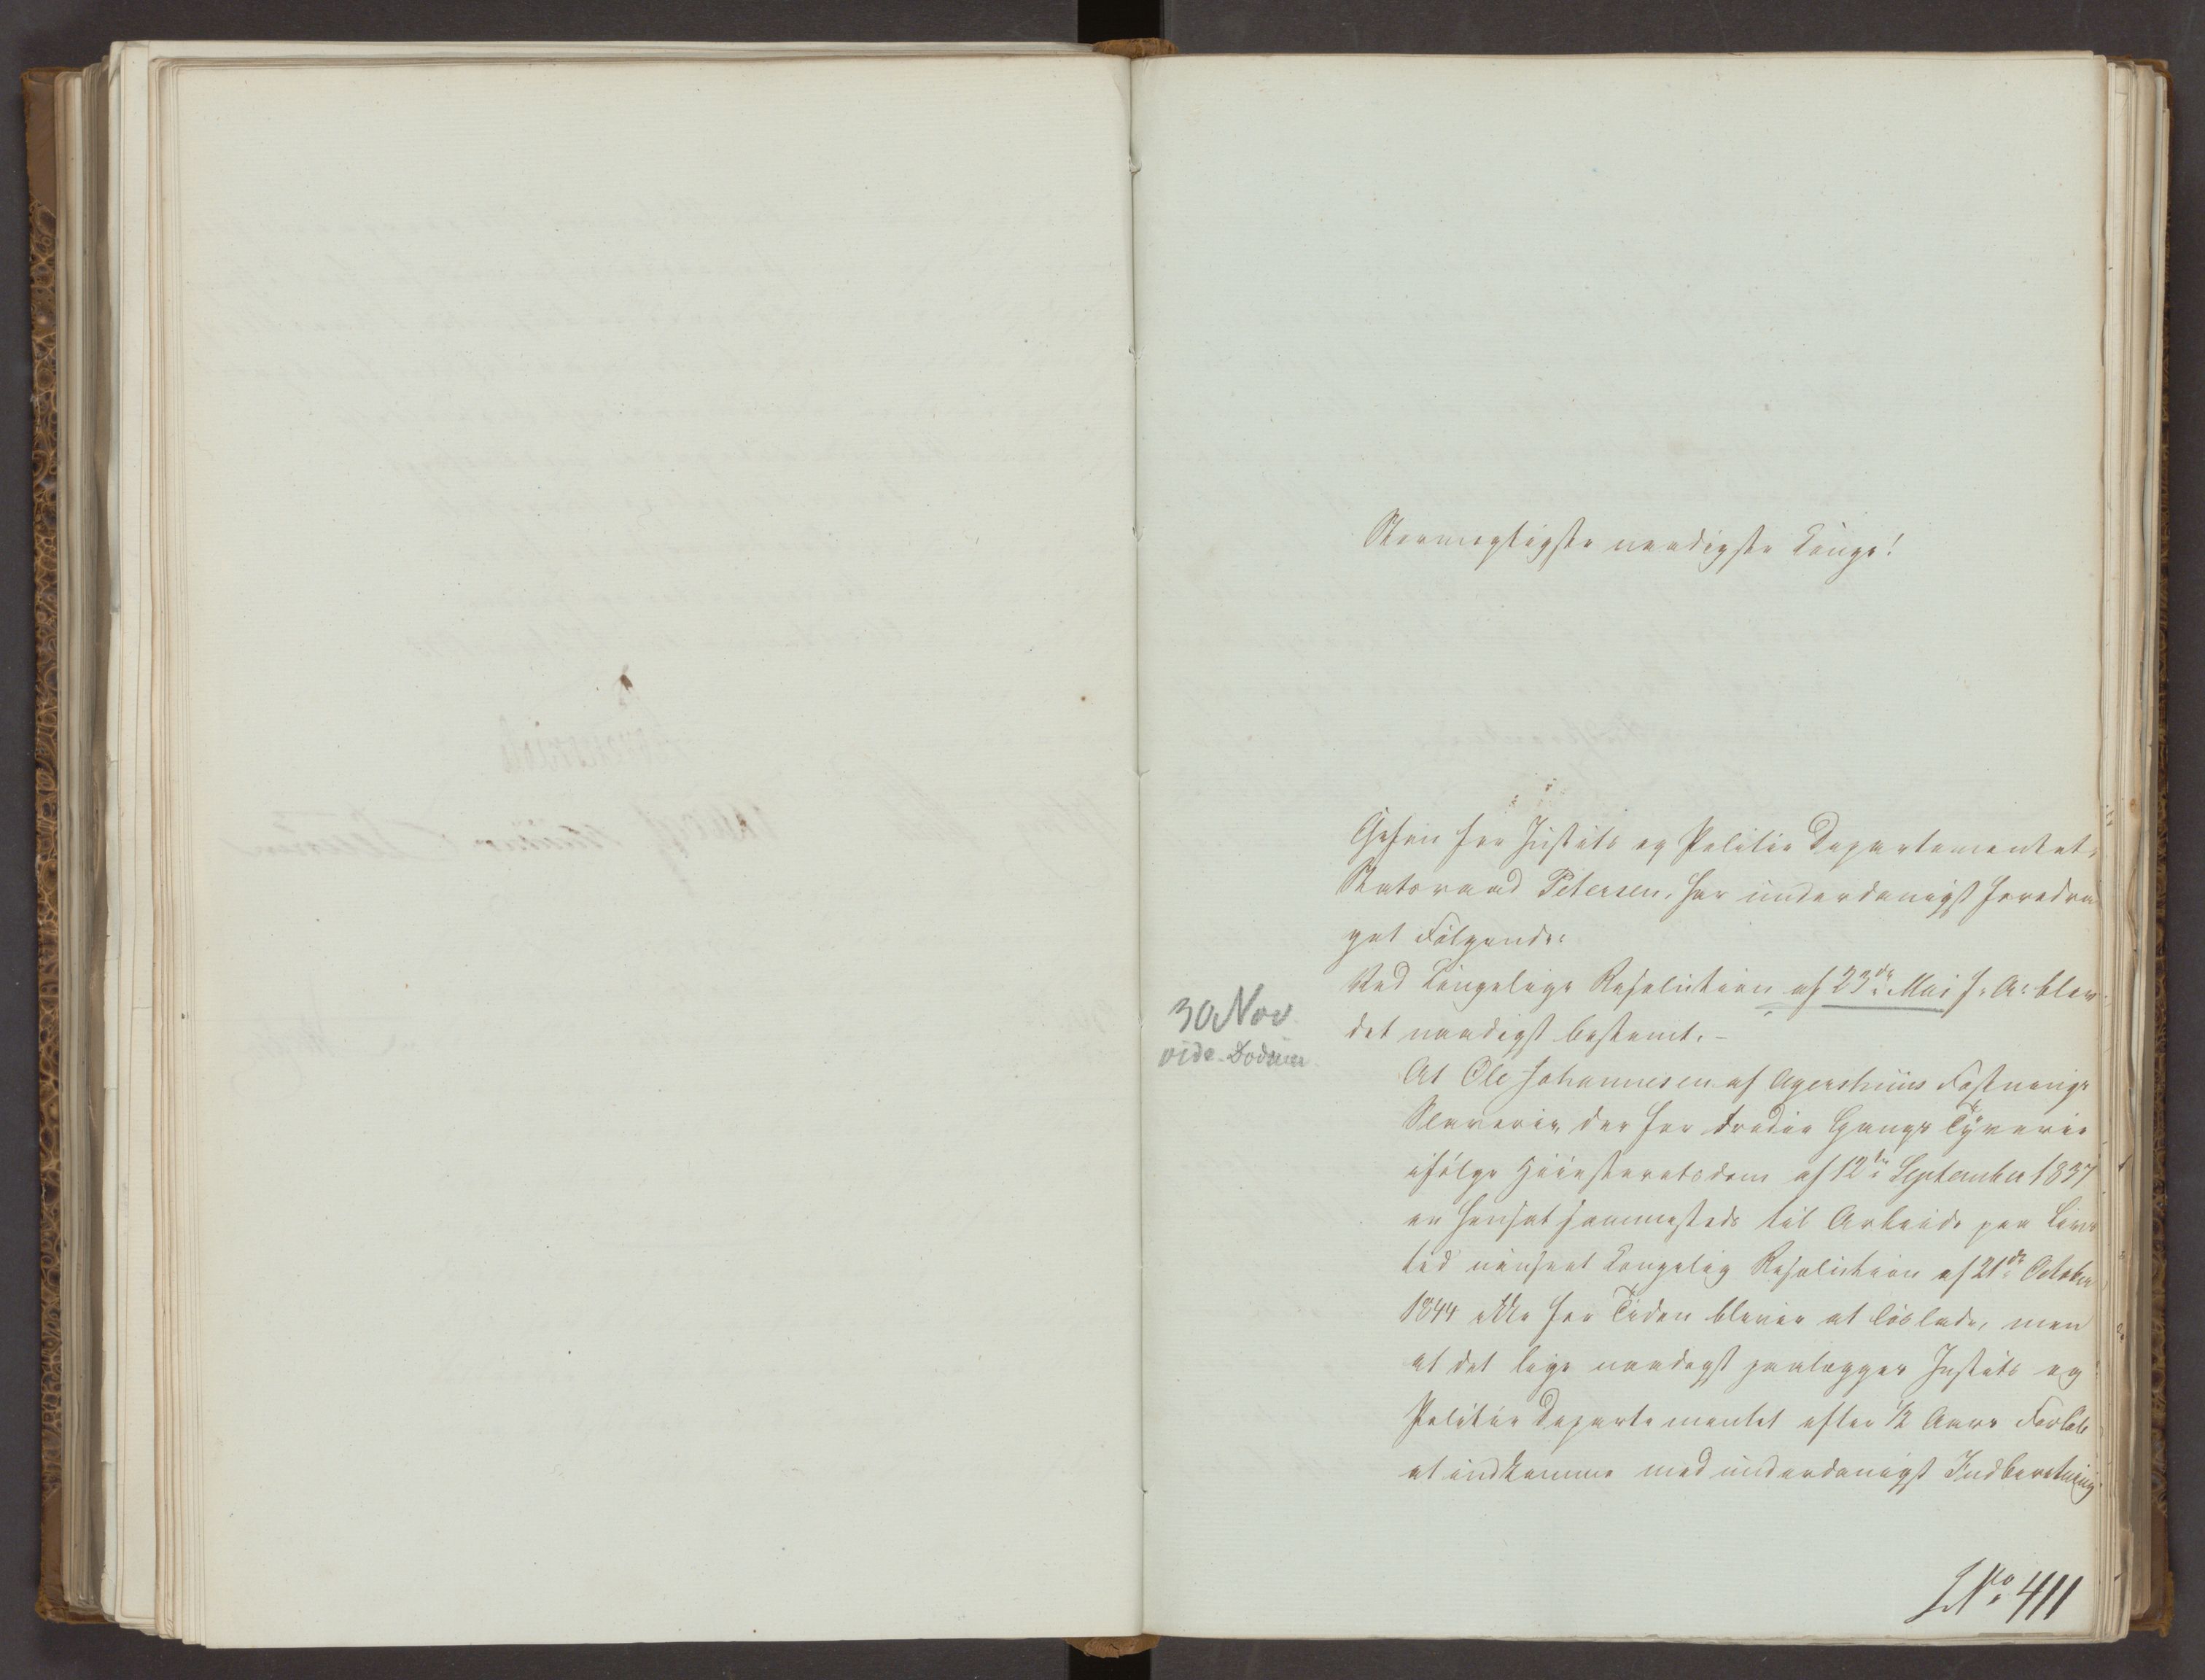 Stormægtigste naadigste Konge!
Chefen for Justits og Politie Departementet,
Statsraad Petersen, har underdanigst foredra
get Følgende:
Ved Kongelige Resolution af 23de Mai f. A. blev
det naadigst bestemt. -
At Ole Johannesen af Agershuus Fæstnings
Slaverie, der for tredie Gangs Tyverie
ifølge Høiesteretsdom af 12te September 1837
er hensat sammesteds til Arbeide paa Livs
tid uanseet Kongelig Resolution af 21de October
1844 ikke for Tiden bliver at løslade, men
at det lige naadigst paalægges Justits og
Politie Departementet efter 1/2 Aars Forløb
at indkomme med underdanigst Indberetning
30 Nov
vide
No 411